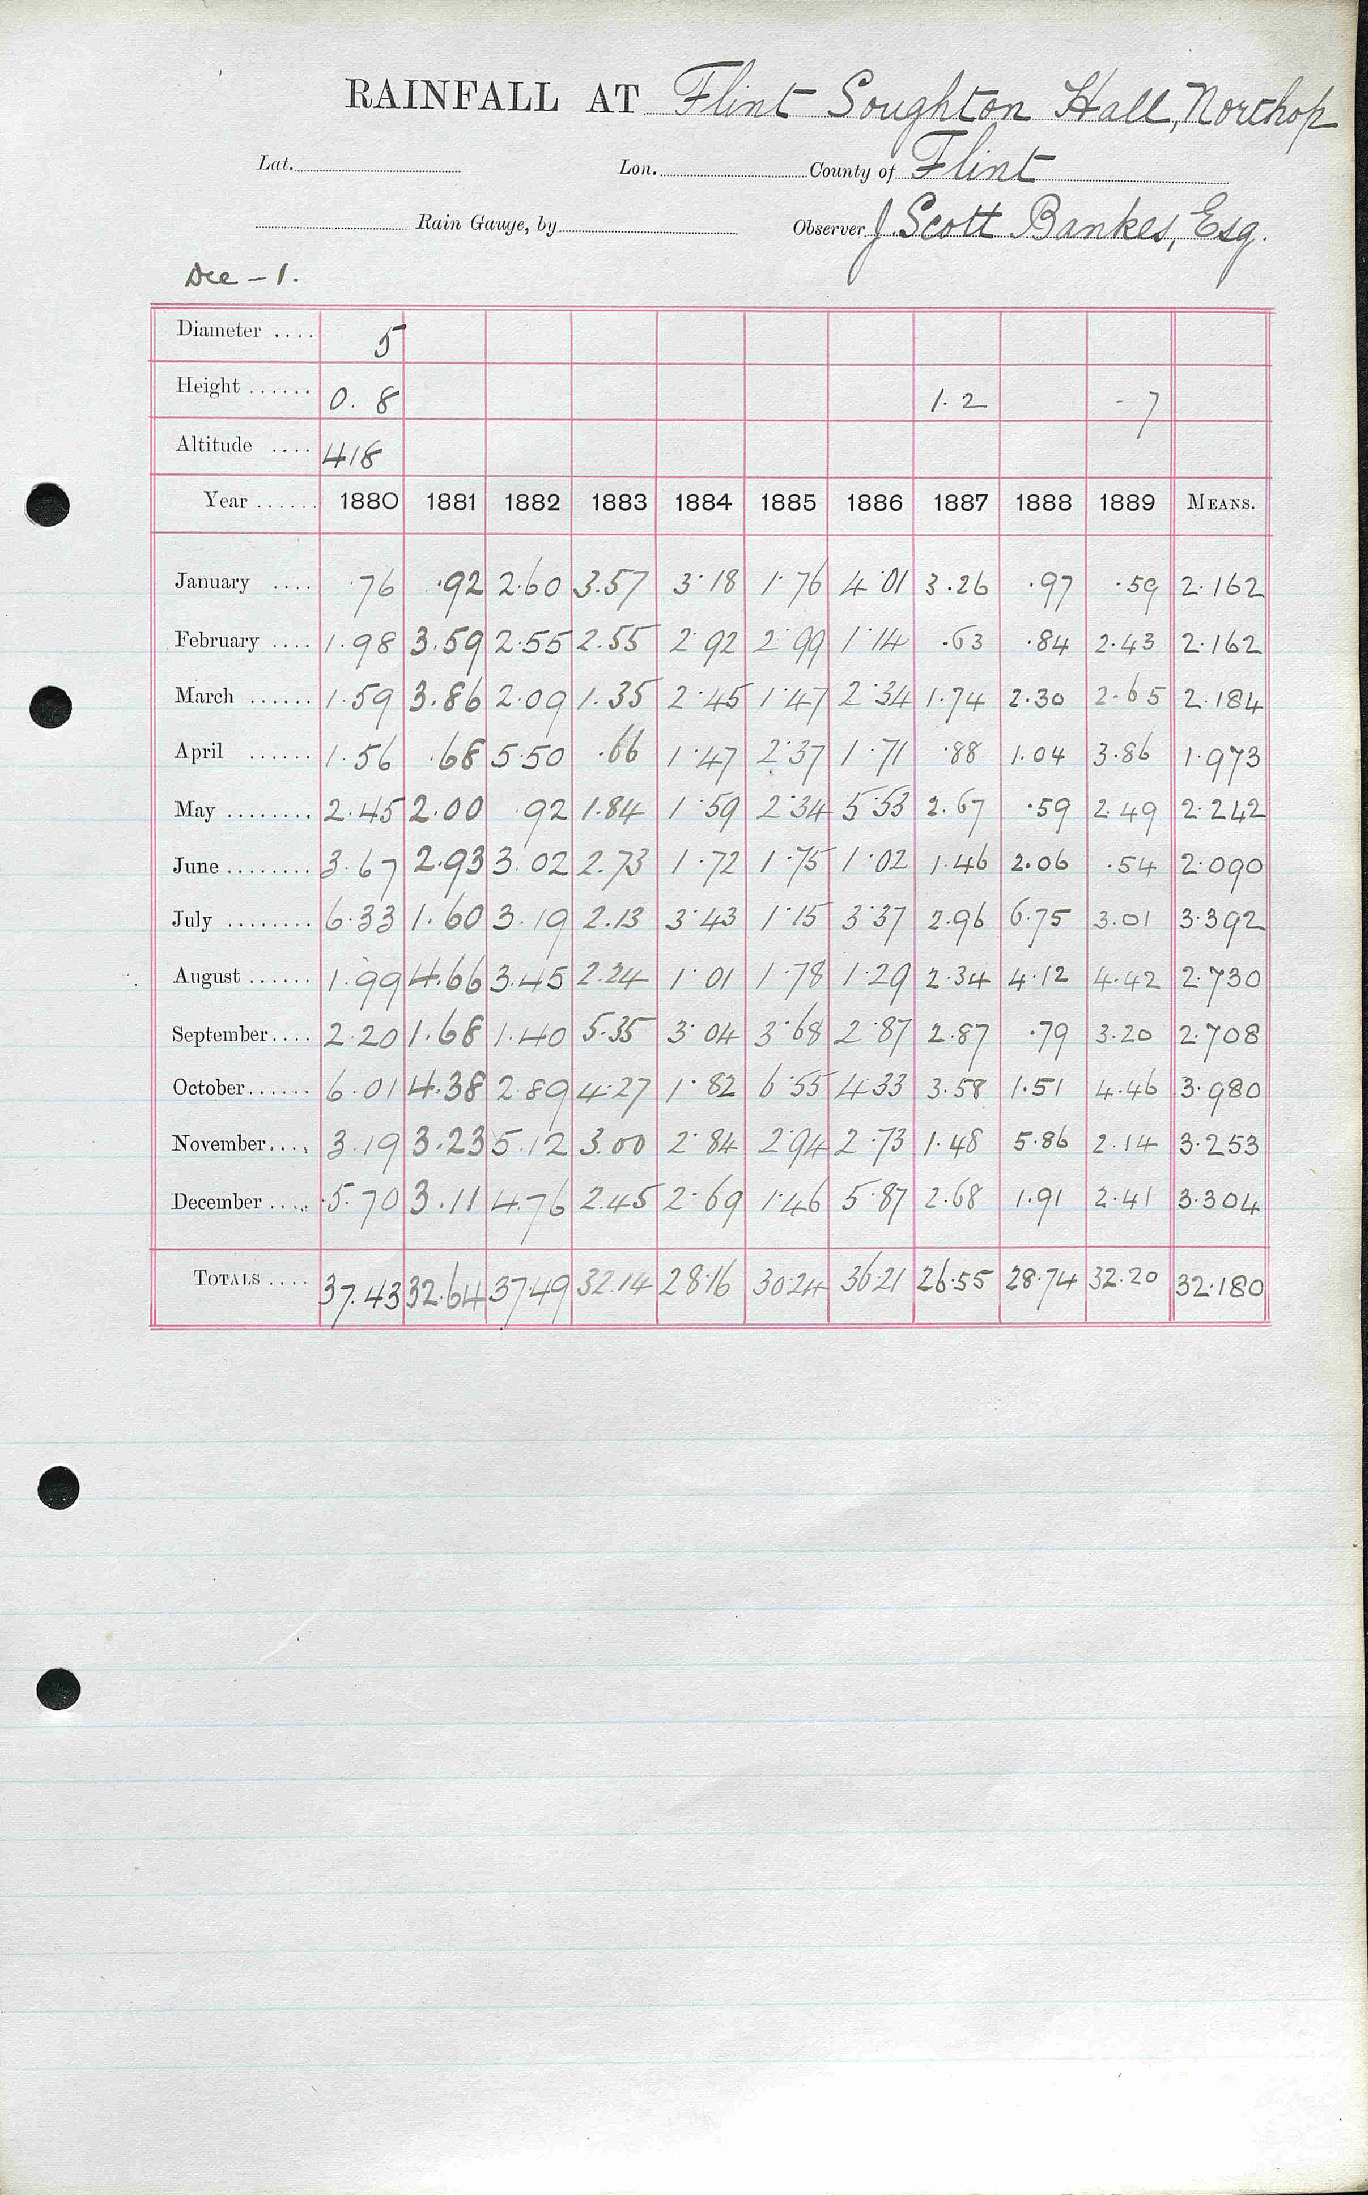 RAINFALL AT Flint Soughton Hall, Northop
Lat. Lon. County of Flint
Rain Gauge, by Observer J Scott Bankes, Esq.
Dec - 1.
Diameter .... 5
Height ...... 0.8 1.2 .7
Altitude .... 418
Year ...... 1880 1881 1882 1883 1884 1885 1886 1887 1888 1889 MEANS.
January .... .76 .92 2.60 3.57 3.18 1.76 4.01 3.26 .97 .59 2.162
February .... 1.98 3.59 2.55 2.55 2.92 2.99 1.14 .63 .84 2.43 2.162
March ...... 1.59 3.86 2.09 1.35 2.45 1.47 2.34 1.74 2.30 2.65 2.184
April ...... 1.56 .68 5.50 .66 1.47 2.37 1.71 .88 1.04 3.86 1.973
May ........ 2.45 2.00 .92 1.84 1.59 2.34 5.53 2.67 .59 2.49 2.242
June ........ 3.67 2.93 3.02 2.73 1.72 1.75 1.02 1.46 2.06 .54 2.090
July ........ 6.33 1.60 3.19 2.13 3.43 1.15 3.37 2.96 6.75 3.01 3.392
August ...... 1.99 4.66 3.45 2.24 1.01 1.78 1.29 2.34 4.12 4.42 2.730
September.... 2.20 1.68 1.40 5.35 3.04 3.68 2.87 2.87 .79 3.20 2.708
October...... 6.01 4.38 2.89 4.27 1.82 6.55 4.33 3.58 1.51 4.46 3.980
November.... 3.19 3.23 5.12 3.00 2.84 2.94 2.73 1.48 5.86 2.14 3.253
December .... 5.70 3.11 4.76 2.45 2.69 1.46 5.87 2.68 1.91 2.41 3.304
TOTALS .... 37.43 32.64 37.49 32.14 28.16 30.24 36.21 26.55 28.74 32.20 32.180